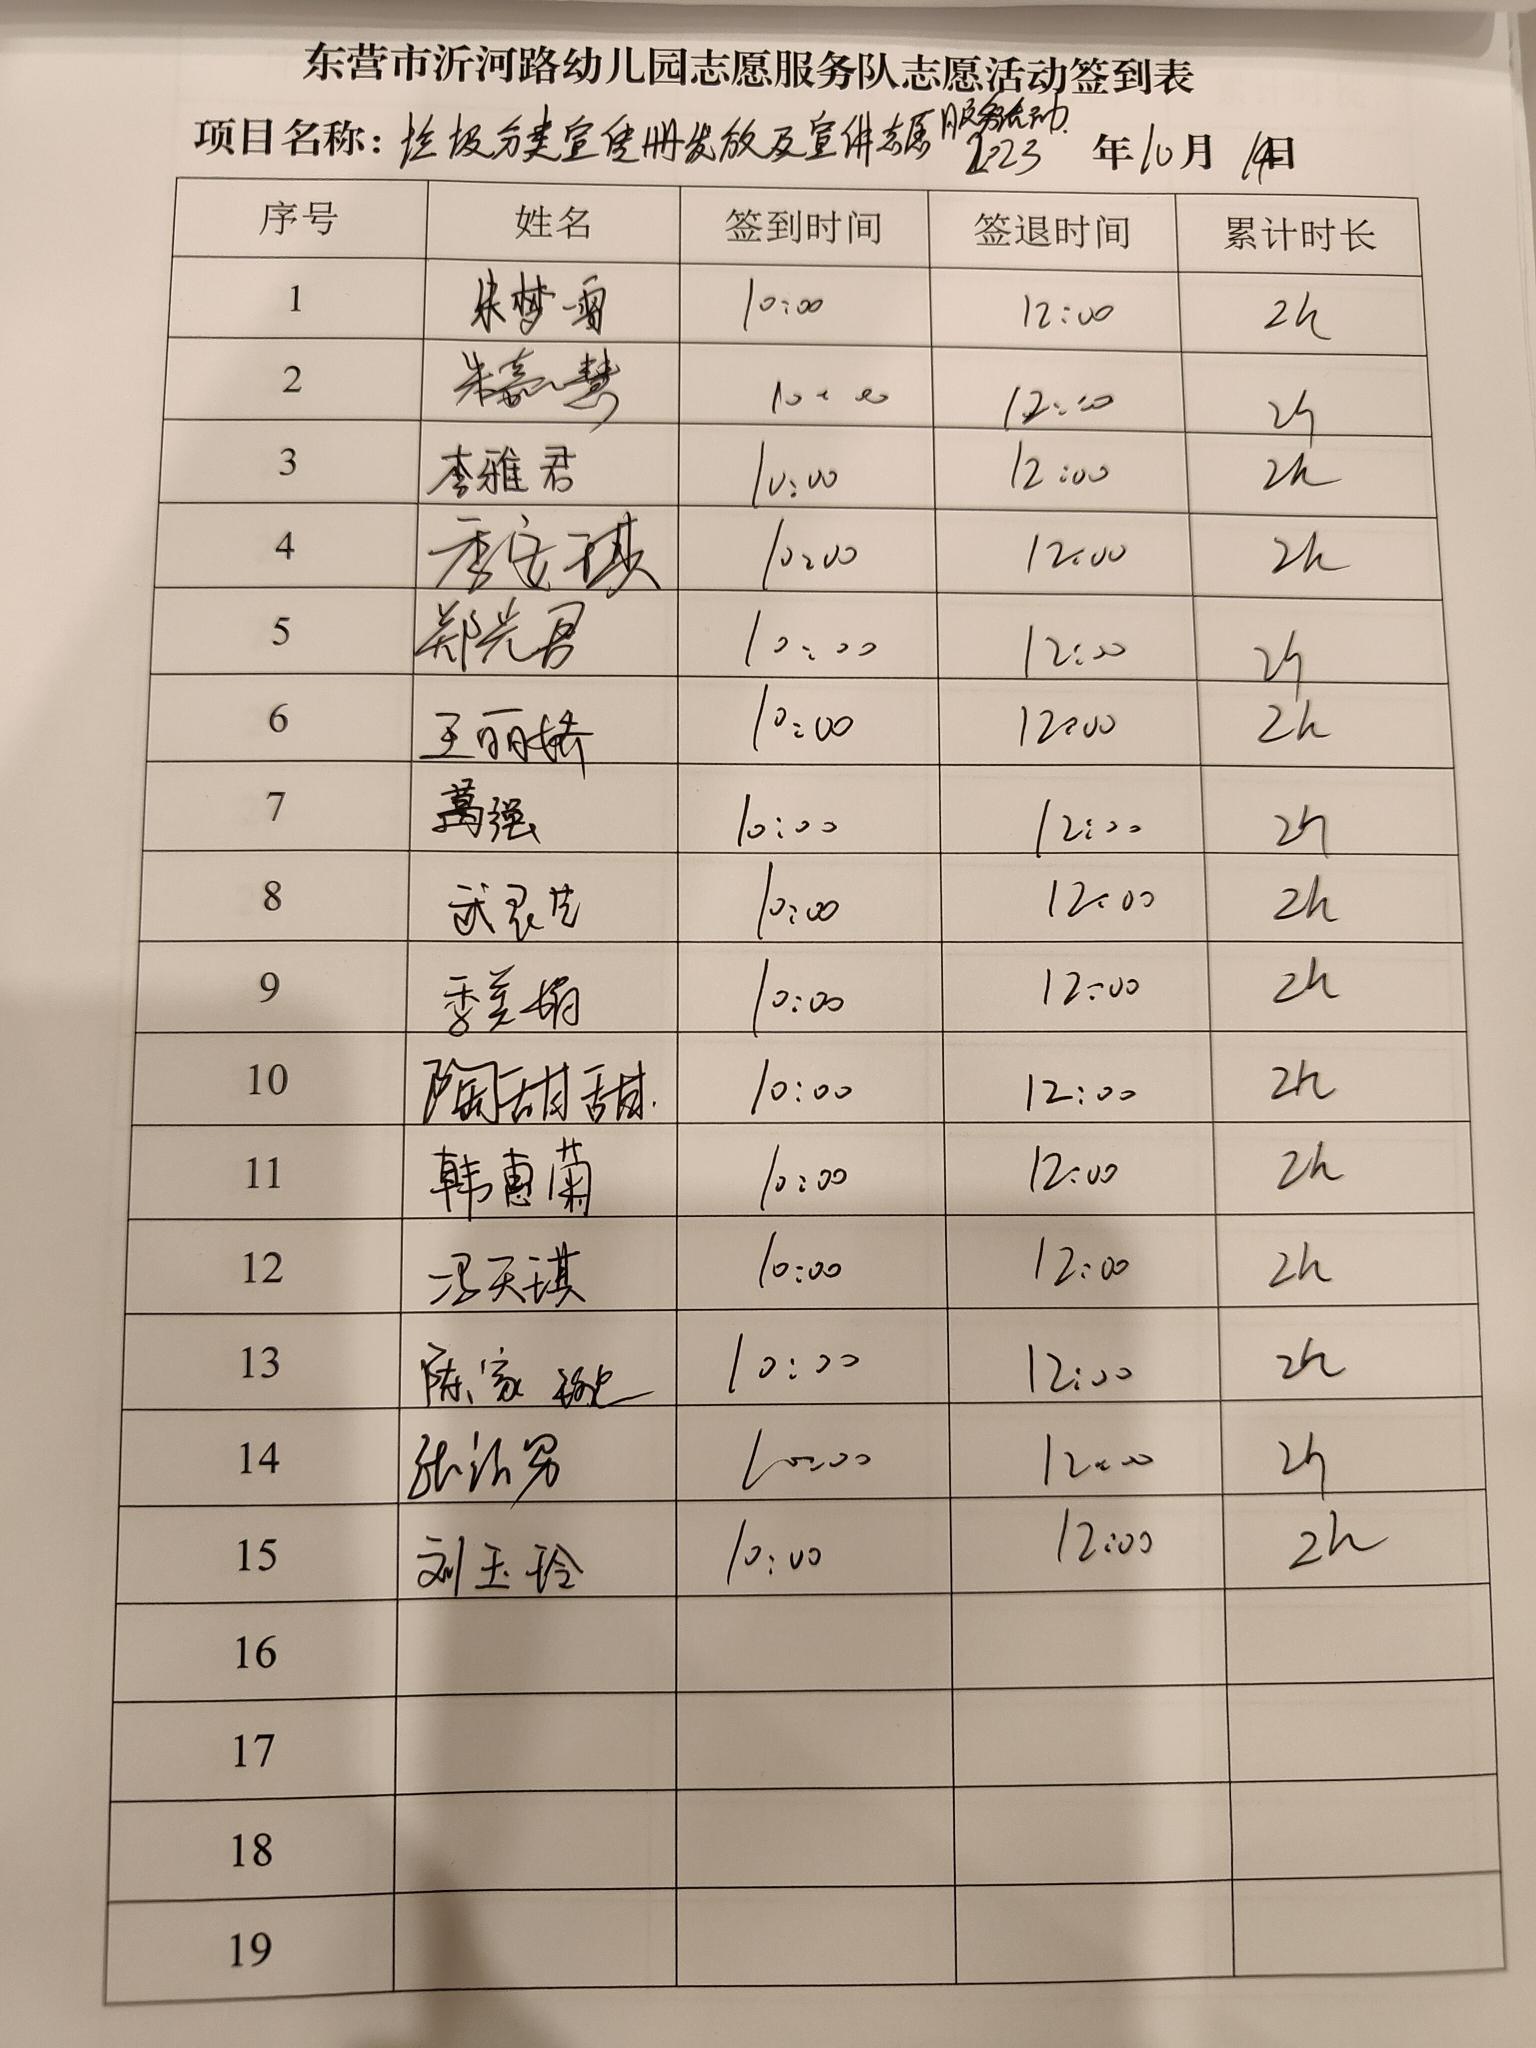 东营市沂河路幼儿园志愿服务队志愿活动签到表
项目名称：垃圾分类宣传册发放及宣讲志愿服务活动 2023 年10月 14日
序号 姓名 签到时间 签退时间 累计时长
1 朱梦雪 10:00 12:00 2h
2 朱嘉慧 10:00 12:00 2h
3 李雅君 10:00 12:00 2h
4 季安琪 10:00 12:00 2h
5 郑光君 10:00 12:00 2h
6 王丽娇 10:00 12:00 2h
7 葛强 10:00 12:00 2h
8 武 10:00 12:00 2h
9 季美娟 10:00 12:00 2h
10 陶甜甜 10:00 12:00 2h
11 韩惠菊 10:00 12:00 2h
12 冯天琪 10:00 12:00 2h
13 陈家 10:00 12:00 2h
14 张 男 10:00 12:00 2h
15 刘玉玲 10:00 12:00 2h
16
17
18
19